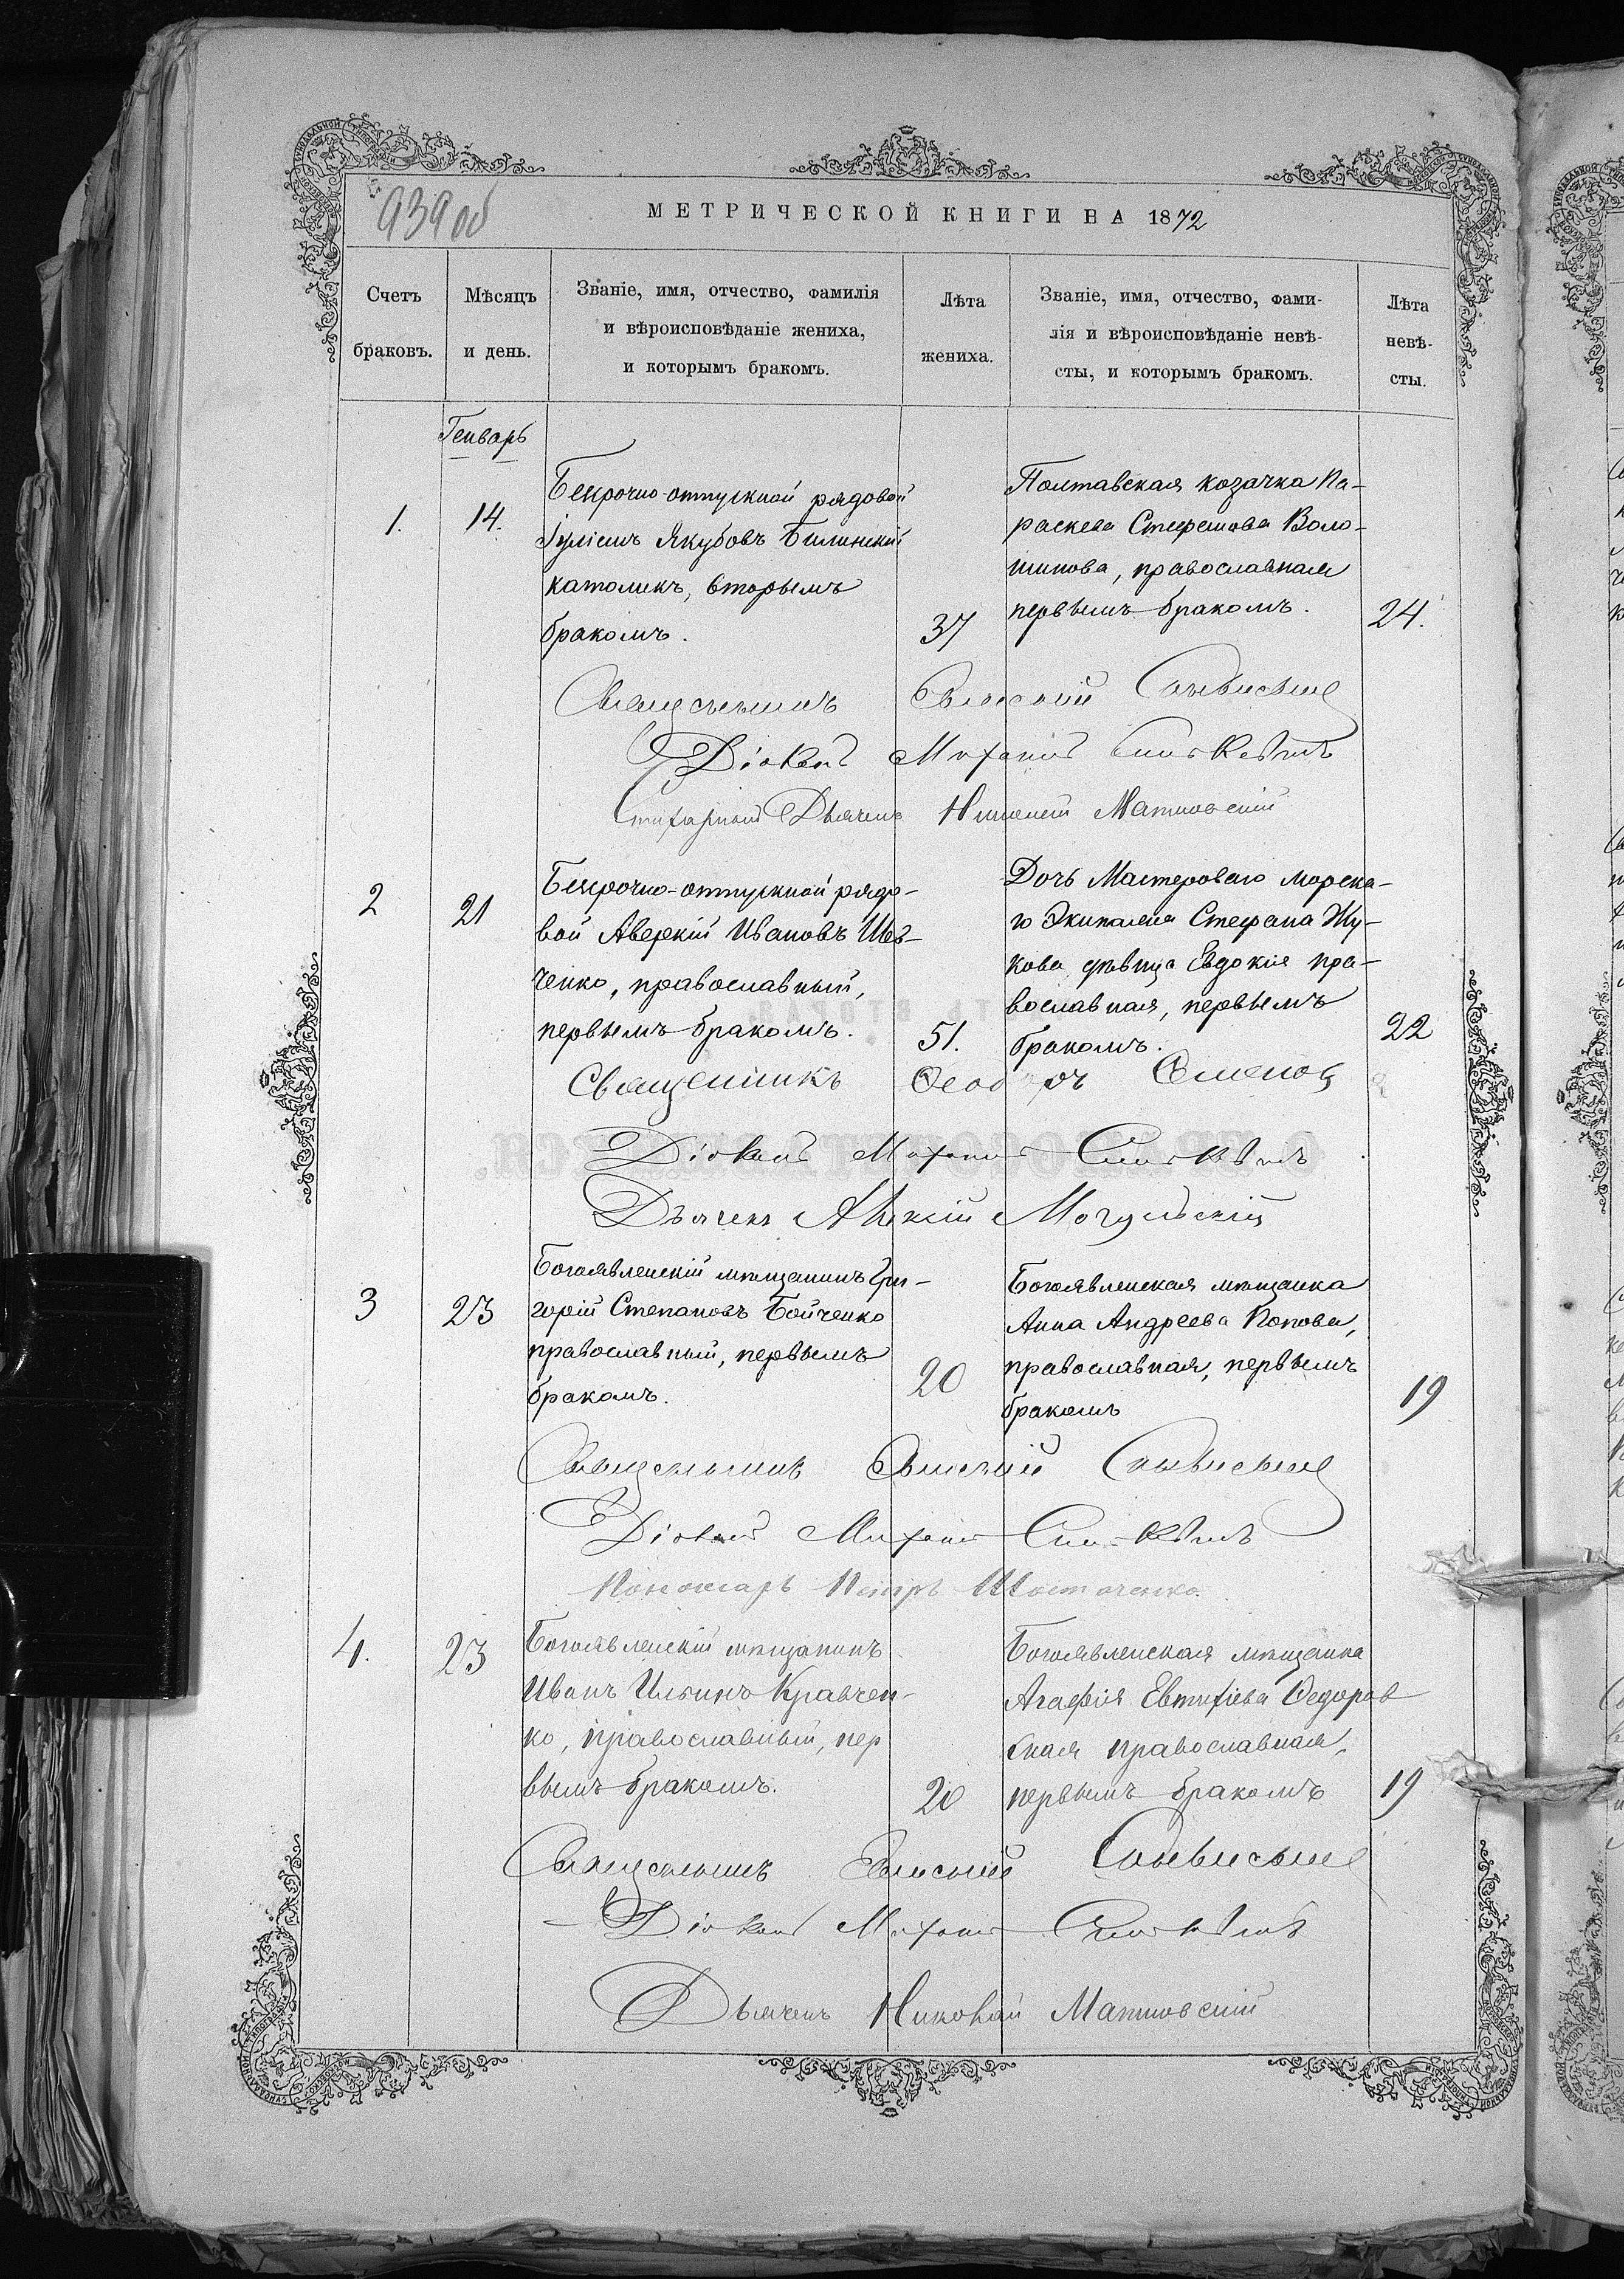 939 об
МЕТРИЧЕСКОЙ КНИГИ НА 1872
Счетъ браковъ.
Мѣсяцъ и день.
Званіе, имя, отчество, фамилія
и вѣроисповѣданіе жениха,
и которымъ бракомъ.
Лѣта жениха.
Званіе, имя, отчество, фами-
лія и вѣроисповѣданіе невѣ-
сты, и которымъ бракомъ.
Лѣта невѣ-
сты.
Генварь
1.
14.
Безсрочно-отпускной рядовой
Іуліанъ Якубовъ Билинскій
католикъ, вторымъ
бракомъ.
37
Полтавская козачка Па-
раскева Стефанова Воло-
шинова, православная
первымъ бракомъ.
24.
Священникъ Евгеній
Діаконъ
Стихарный Дьячекъ Николай Матковскій
2
21
Безсрочно-отпускной рядо-
вой Аверкій Ивановъ Шев-
ченко, православный,
первымъ бракомъ.
51.
Дочь Мастероваго морска-
го Экипажа Стефана Жу-
кова дѣвица Евдокія пра-
вославная, первымъ
бракомъ.
22
Священникъ Ѳеодоръ Семенов
Діаконъ
Дьячекъ Могульскій
3
23
Богоявленскій мѣщанинъ Гри-
горій Степановъ Бойченко
православный, первымъ
бракомъ.
20
Богоявленская мѣщанка
Анна Андреева Попова,
православная, первымъ
бракомъ
19
Священникъ
Діаконъ
Пономарь Петръ Шостаченко.
4.
23
Богоявленскій мѣщанинъ
Иванъ Ильинъ Кравчен-
ко, православный, пер
вымъ бракомъ.
20
Богоявленская мѣщанка
Агафія Евтихіева Ѳедоров
ская православная,
первымъ бракомъ
19
Священникъ
Діаконъ
Дьячекъ Николай Матковскій